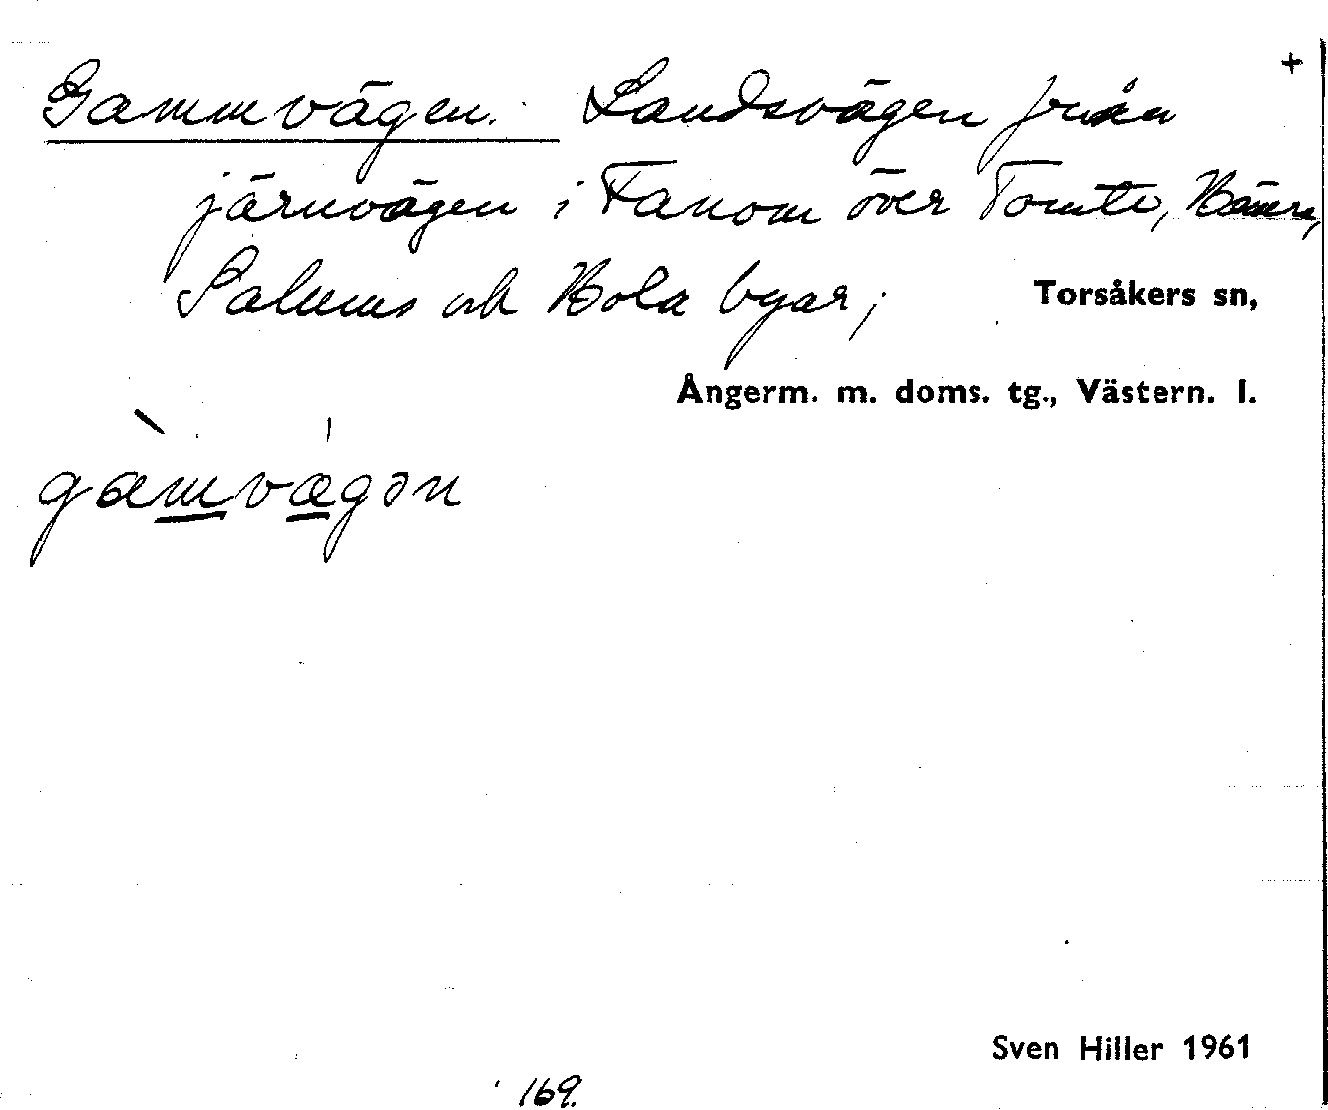 +
Gammvägen. Landsvägen från
järnvägen i Fanom över Tomte,
Salums och Bola byar;
Torsåkers sn,
Ångerm. m. doms. tg., Västern. l.
gamvägən
Sven Hiller 1961
169.